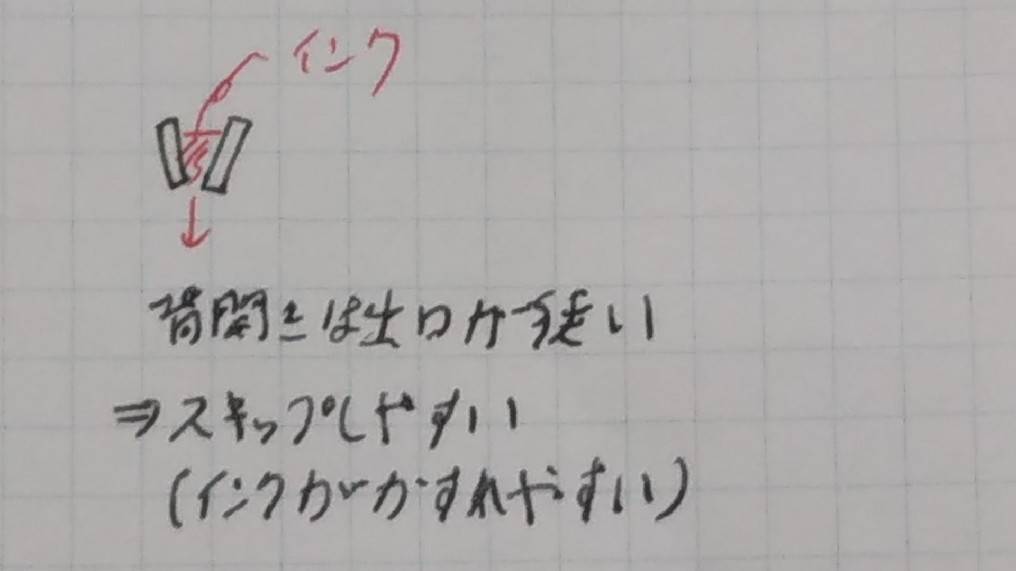 インク
背開きは出口が狭い
⇒スキップしやすい
(インクがかすれやすい)